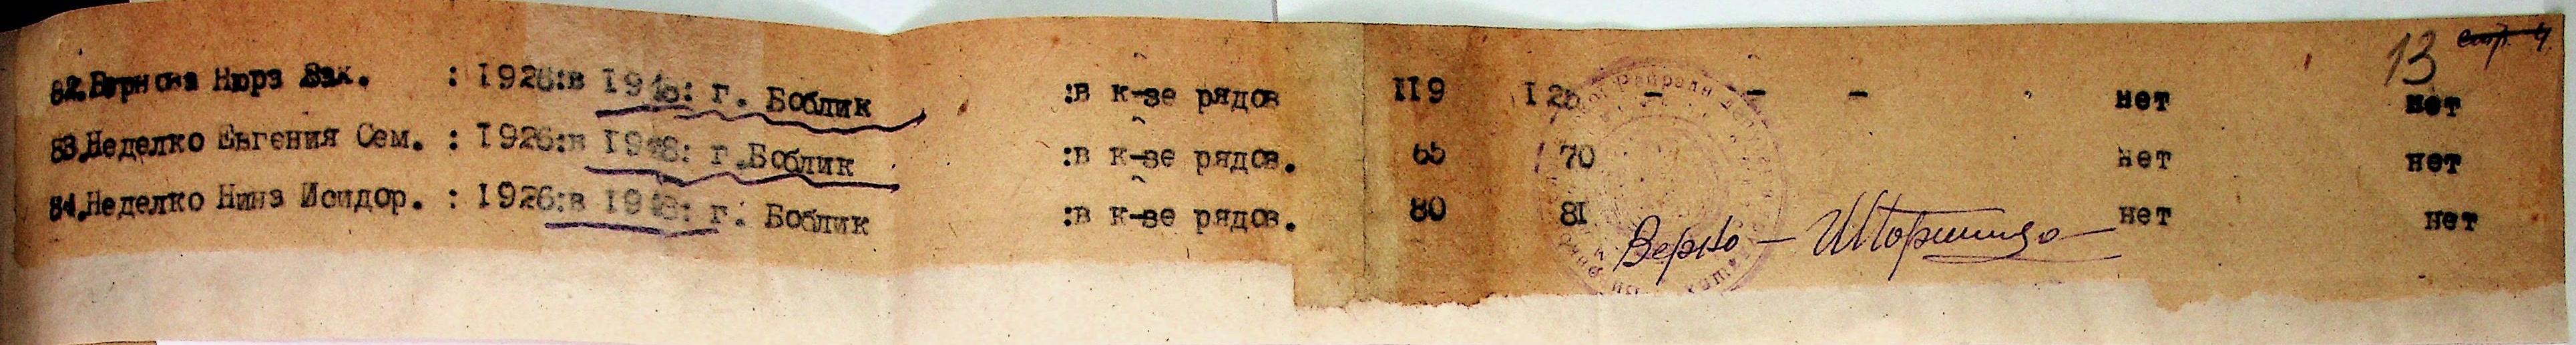 13 стр. 4
82. Нюра Зах. : 1926:в г. Боблик :в к-зе рядов 119 - - - нет нет
83.Неделко Евгения Сем. : 1926:в 1948: г.Боблик :в к-зе рядов. 65 70 нет нет
84.Неделко Нина Исидор. : 1926:в 1948: г. Боблик :в к-зе рядов. 80 81 нет нет
Верно -